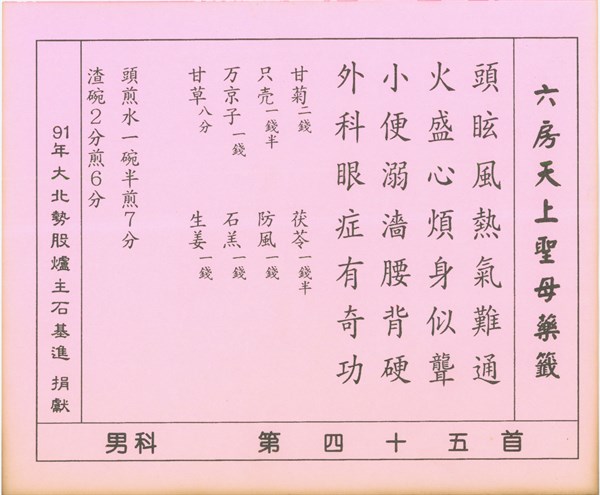 六房天上聖母藥籤
頭眩風熱氣難通
火盛心煩身似聾
小便溺濇腰背硬
外科眼症有奇功
甘菊二錢 茯苓一錢半
只壳一錢半 防風一錢
万京子一錢 石羔一錢
甘草八分 生姜一錢
頭煎水一碗半煎7分
渣碗2分煎6分
91年大北勢股爐主石基進 捐獻
男科 第四十五首